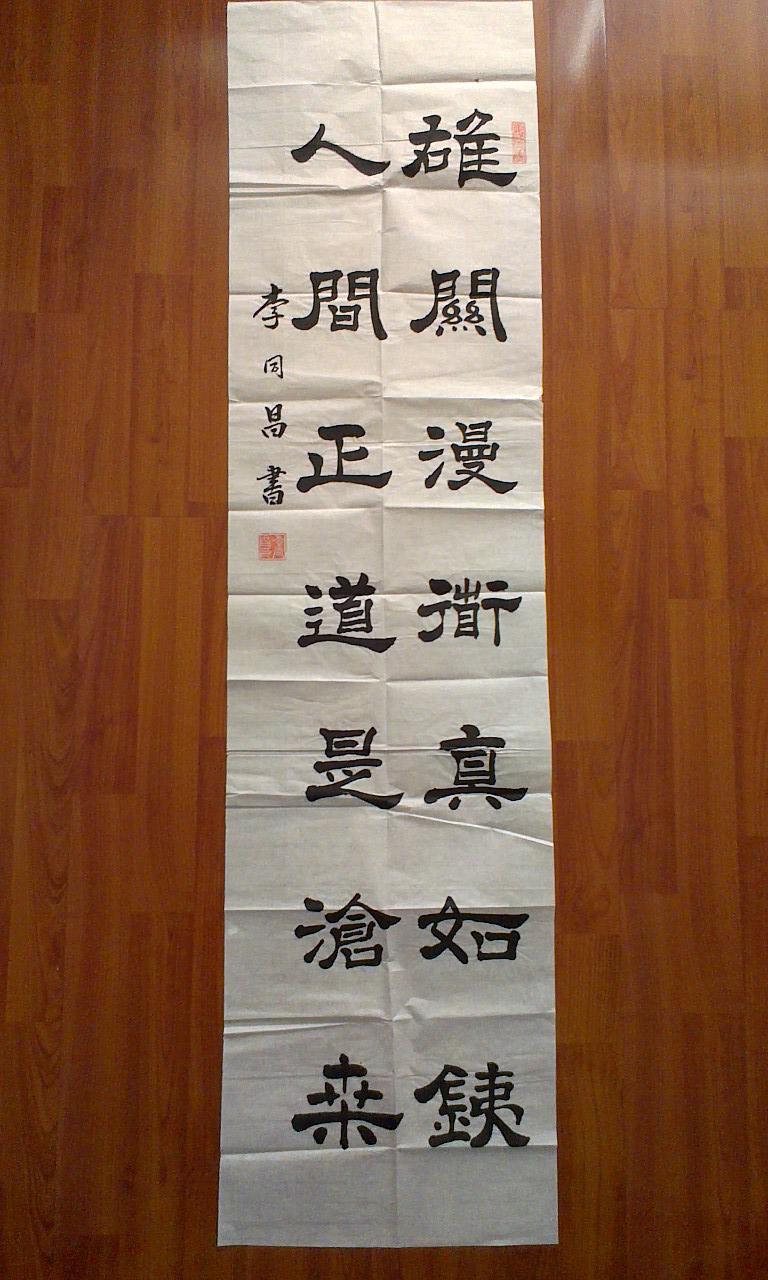 雄關漫衜真如銕
人間正道是滄桒
李同昌書